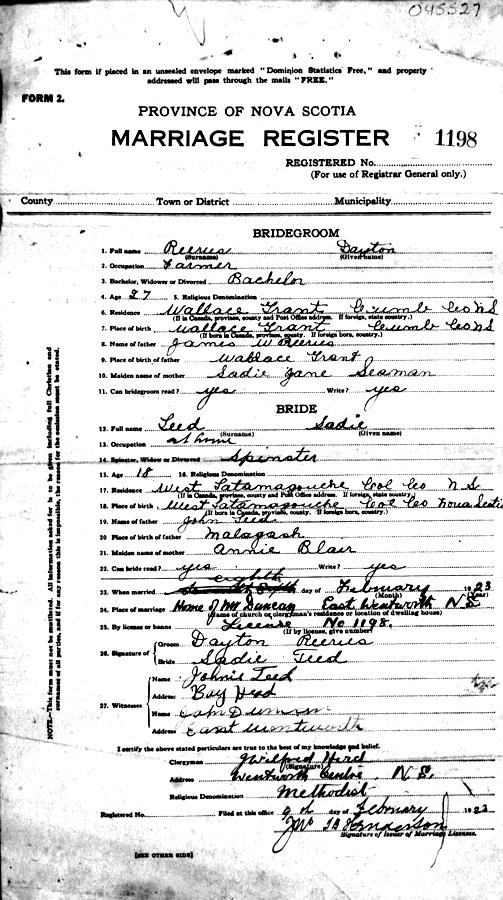 045527
This form if placed in an unsealed envelope marked "Dominion Statistics Free," and property
addressed will pass through the mails "FREE."
FORM 2.
PROVINCE OF NOVA SCOTIA
MARRIAGE REGISTER 1198
REGISTERED No.
(For use of Registrar General only.)
County Town or District Municipality
BRIDEGROOM
1. Full name Reeves Dayton
(Surname) (Given name)
2. Occupation Farmer
3. Bachelor, Widower or Divorced Bachelor
4. Age 27 5. Religious Denomination
6. Residence Wallace Grant Cumb Co NS
(If in Canada, province, county and Post Office address. If foreign, state country.)
7. Place of birth Wallace Grant Cumb Co NS
(If born in Canada, province, county. If foreign born, country.)
8. Name of father James W Reeves
9. Place of birth of father Wallace Grant
10. Maiden name of mother Sadie Jane Seaman
11. Can bridegroom read? yes Write? yes
BRIDE
12. Full name Teed Sadie
(Surname) (Given name)
13. Occupation at home
14. Spinster, Widow or Divorced Spinster
15. Age 18 16. Religious Denomination
17. Residence West Tatamagouche Col Co N.S.
(If in Canada, province, county and Post Office address. If foreign, state country.)
18. Place of birth West Tatamagouche Col Co Nova Scotia
(If born in Canada, province, county. If foreign born, country.)
19. Name of father John Teed
20. Place of birth of father Malagash
21. Maiden name of mother Annie Blair
22. Can bride read? yes Write? yes
23. When married eighth day of February 1923
(Month)
24. Place of marriage Home of Mr Duncan East Wentworth N S
(Name of church or clergyman's residence or location of dwelling house)
25. By license or banns License No 1198.
(If by license, give number)
26. Signature of Groom Dayton Reeves
Bride Sadie Teed
27. Witnesses Name Johnie Teed
Address Bay Head
Name Duncan
Address East Wentworth
I certify the above stated particulars are true to the best of my knowledge and belief.
Clergyman J Wilfred Hird
(Signature)
Address Wentworth Centre, N.S.
Religious Denomination Methodist
Registered No. Filed at this office 9th day of February 1923
Henderson
Signature of Issuer of Marriage Licenses.
[SEE OTHER SIDE]
NOTE.—This form must not be mutilated. All information asked for is to be given including full Christian and
surnames of all parties, and if for any reason this is impossible, the reason for the omission must be stated.